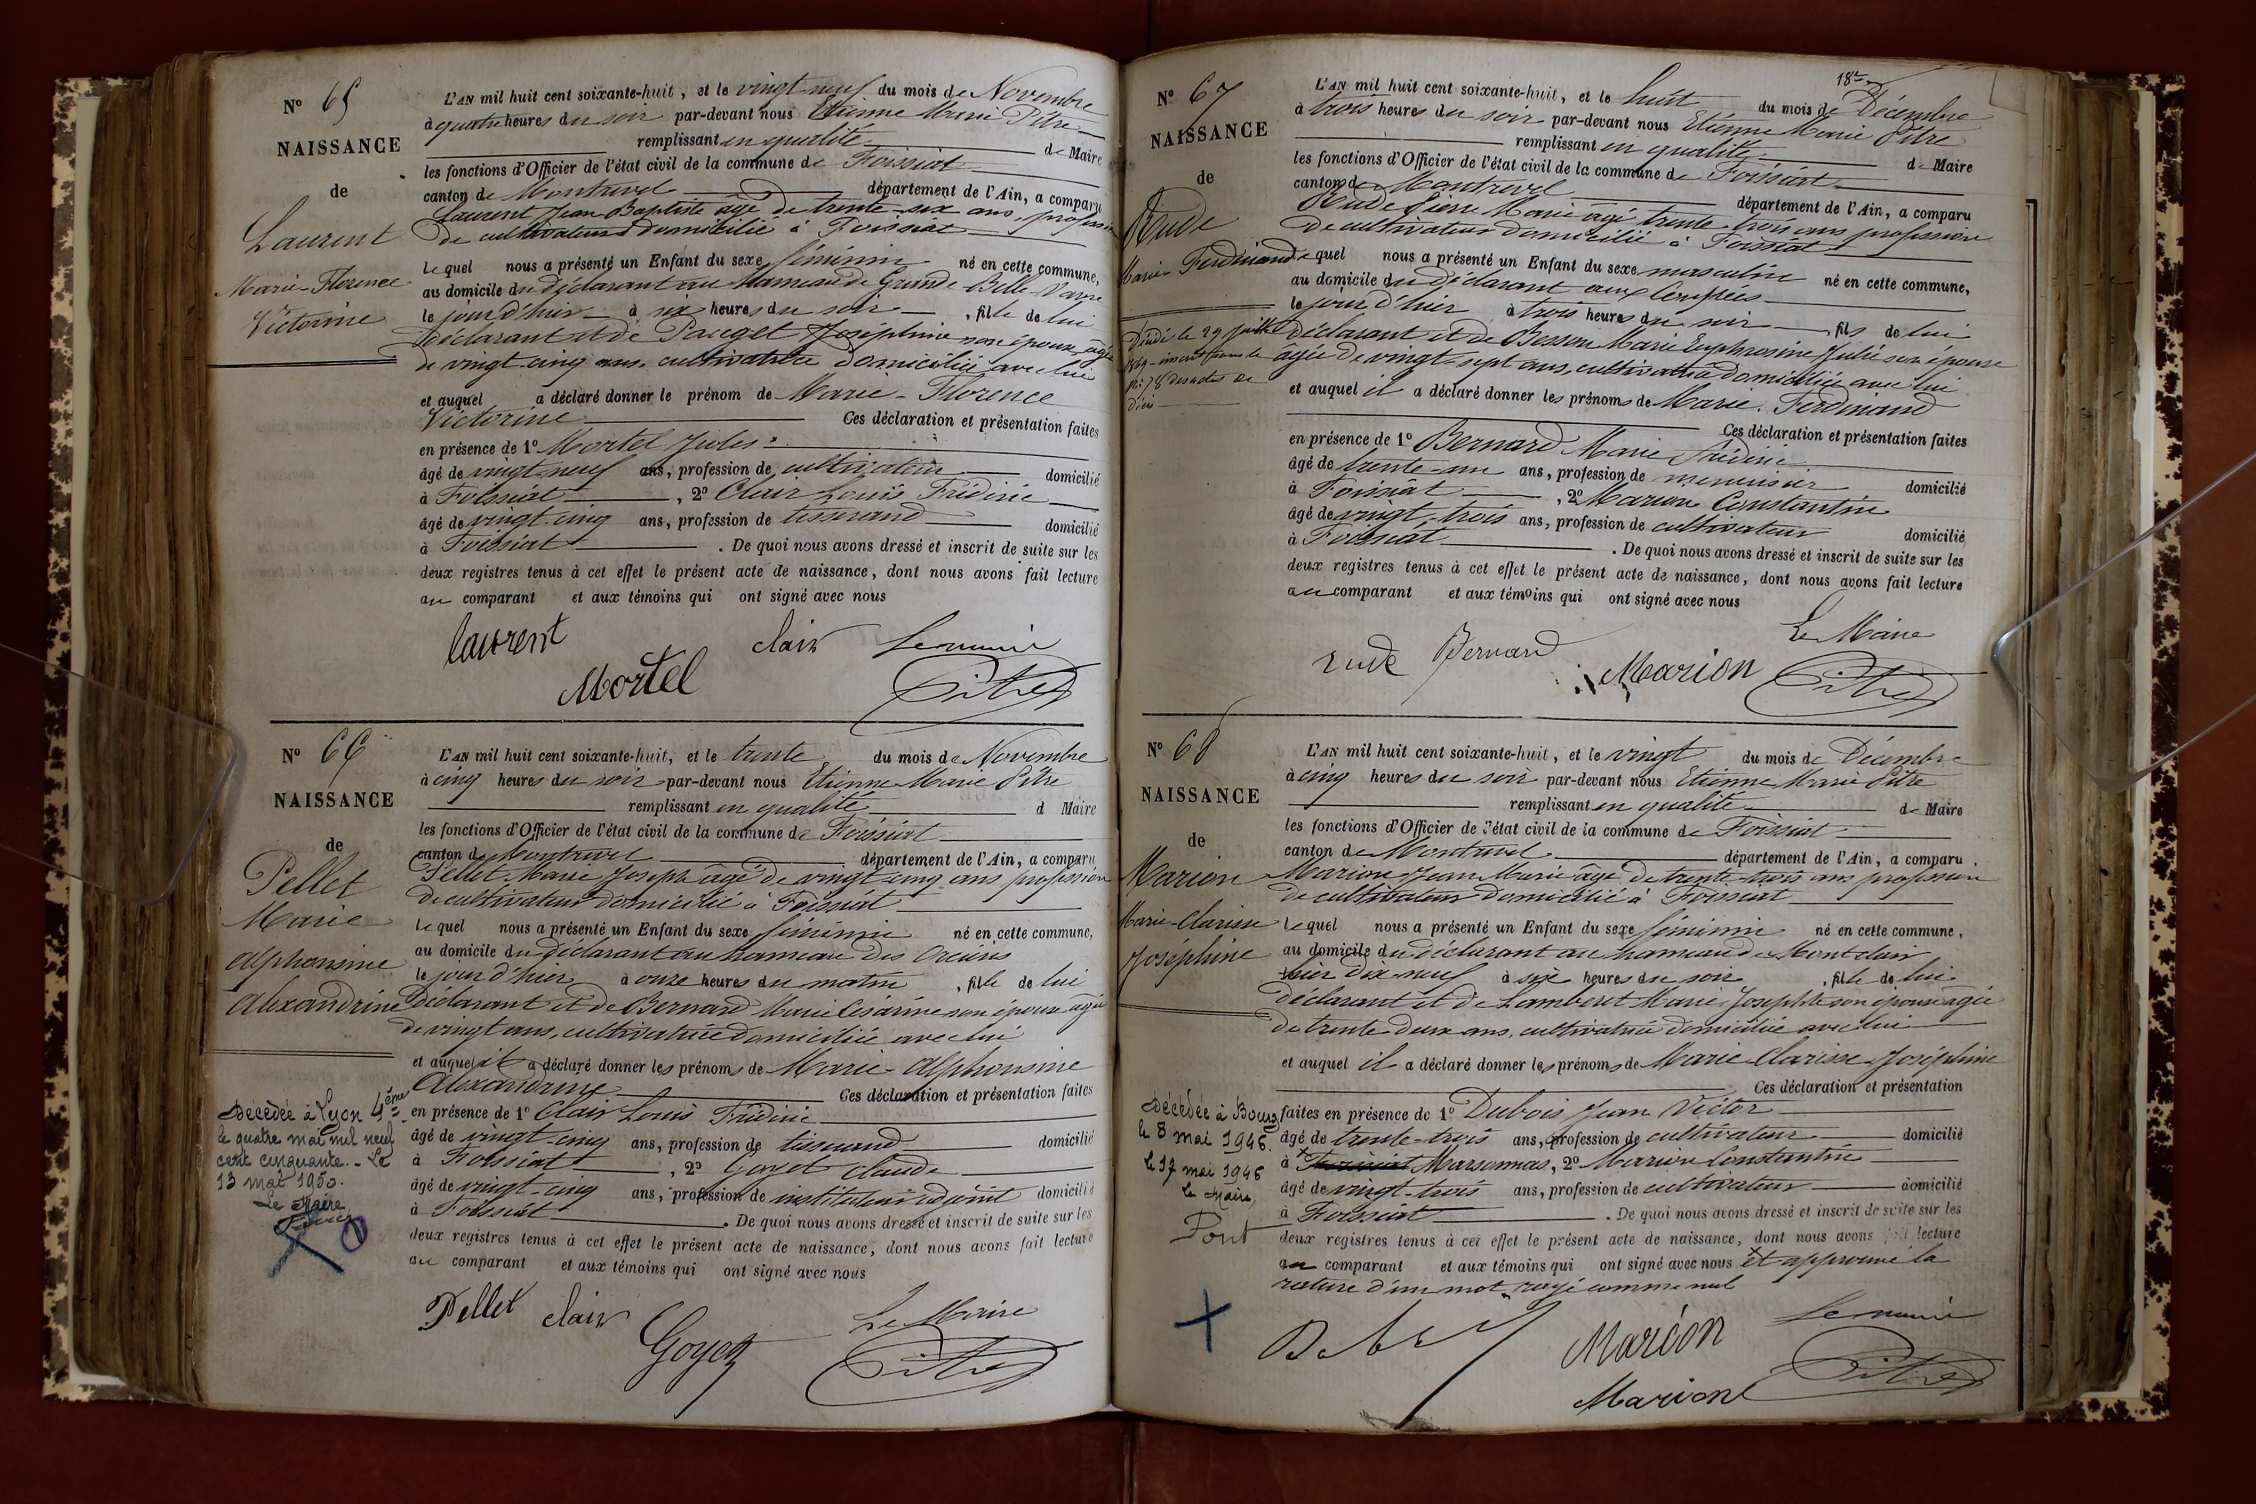 N° 65
NAISSANCE
de
Laurent
Marie-Florence
Victorine
L'AN mil huit cent soixante-huit, et le vingt-neuf du mois de Novembre
à quatre heures du soir par-devant nous Etienne Marie Pitre
remplissant en qualité de Maire
les fonctions d'Officier de l'état civil de la commune de Foissiat
canton de Montrevel département de l'Ain, a comparu
Laurent Jean Baptiste âgé de trente-six ans, profession
de cultivateur domicilié à Foissiat
lequel nous a présenté un Enfant du sexe féminin né en cette commune,
au domicile du déclarant au hameau de Grande Belle-Varne
le jour d'hier à six heures du soir, fille de lui
déclarant et de Joséphine son épouse âgée
de vingt-cinq ans, cultivatrice domiciliée avec lui
et auquel a déclaré donner le prénom de Marie-Florence
Victorine Ces déclaration et présentation faites
en présence de 1° Mortel Jules
âgé de vingt-neuf ans, profession de cultivateur domicilié
à Foissiat, 2° Clair Louis Frédéric
âgé de vingt-cinq ans, profession de tisserand domicilié
à Foissiat. De quoi nous avons dressé et inscrit de suite sur les
deux registres tenus à cet effet le présent acte de naissance, dont nous avons fait lecture
au comparant et aux témoins qui ont signé avec nous
laurent clair Le maire
Mortel Pitre
N° 66
NAISSANCE
de
Pellet
Marie
Alphonsine
Alexandrine
Décédée à Lyon 4ème
le quatre mai mil neuf
cent cinquante. - Le
13 mai 1950.
Le Maire
L'AN mil huit cent soixante-huit, et le trente du mois de Novembre
à cinq heures du soir par-devant nous Etienne Marie Pitre
remplissant en qualité d Maire
les fonctions d'Officier de l'état civil de la commune de Foissiat
canton de Montrevel département de l'Ain, a comparu
Pellet Marie Joseph âgé de vingt-cinq ans profession
de cultivateur domicilié à Foissiat
lequel nous a présenté un Enfant du sexe féminin né en cette commune,
au domicile du déclarant au hameau des Orcières
le jour d'hier à onze heures du matin, fille de lui
déclarant et de Bernard Marie Césarine son épouse âgée
de vingt ans, cultivatrice domiciliée avec lui
et auquel il a déclaré donner les prénoms de Marie-Alphonsine
Alexandrine Ces déclaration et présentation faites
en présence de 1° Clair Louis Frédéric
âgé de vingt-cinq ans, profession de tisserand domicilié
à Foissiat, 2° Goyet Claude
âgé de vingt-cinq ans, profession de instituteur adjoint domicilié
à Foissiat. De quoi nous avons dressé et inscrit de suite sur les
deux registres tenus à cet effet le présent acte de naissance, dont nous avons fait lecture
au comparant et aux témoins qui ont signé avec nous
Pellet clair Le Maire
Goyet Pitre
N° 67
NAISSANCE
de
Rude
Marie Ferdinand
Décédé le 29 juillet
1869 - inscrit sous le
n° 78 des actes de
décès
18bre
L'AN mil huit cent soixante-huit, et le huit du mois de Décembre
à trois heures du soir par-devant nous Etienne Marie Pitre
remplissant en qualité de Maire
les fonctions d'Officier de l'état civil de la commune de Foissiat
canton de Montrevel département de l'Ain, a comparu
Rude Pierre Marie âgé trente-trois ans profession
de cultivateur domicilié à Foissiat
lequel nous a présenté un Enfant du sexe masculin né en cette commune,
au domicile du déclarant aux
le jour d'hier à trois heures du soir, fils de lui
déclarant et de Besson Marie Euphrosine Julie son épouse
âgée de vingt-sept ans, cultivatrice domiciliée avec lui
et auquel il a déclaré donner les prénoms de Marie-Ferdinand
Ces déclaration et présentation faites
en présence de 1° Bernard Marie Frédéric
âgé de trente-un ans, profession de menuisier domicilié
à Foissiat, 2° Marion Constantin
âgé de vingt-trois ans, profession de cultivateur domicilié
à Foissiat. De quoi nous avons dressé et inscrit de suite sur les
deux registres tenus à cet effet le présent acte de naissance, dont nous avons fait lecture
au comparant et aux témoins qui ont signé avec nous
Le Maire
rude Bernard Marion Pitre
N° 68
NAISSANCE
de
Marion
Marie-Clarisse
Joséphine
Décédée à Bourg
le 8 mai 1946.
le 17 mai 1946
le Maire,
Pont
L'AN mil huit cent soixante-huit, et le vingt du mois de Décembre
à cinq heures du soir par-devant nous Etienne Marie Pitre
remplissant en qualité de Maire
les fonctions d'Officier de l'état civil de la commune de Foissiat
canton de Montrevel département de l'Ain, a comparu
Marion Jean Marie âgé de trente-trois ans profession
de cultivateur domicilié à Foissiat
lequel nous a présenté un Enfant du sexe féminin né en cette commune,
au domicile du déclarant au hameau de Montclair
hier dix-neuf à six heures du soir, fille de lui
déclarant et de Lamberet Marie-Josephte son épouse âgée
de trente-deux ans, cultivatrice domiciliée avec lui
et auquel il a déclaré donner les prénoms de Marie Clarisse Joséphine
Ces déclaration et présentation
faites en présence de 1° Dubois Jean Victor
âgé de trente-trois ans, profession de cultivateur domicilié
à Foissiat Marsonnas, 2° Marion Constantin
âgé de vingt-trois ans, profession de cultivateur domicilié
à Foissiat. De quoi nous avons dressé et inscrit de suite sur les
deux registres tenus à cet effet le présent acte de naissance, dont nous avons fait lecture
au comparant et aux témoins qui ont signé avec nous et approuvé la
rature d'un mot rayé comme nul
Le maire
Marion Pitre
Marion